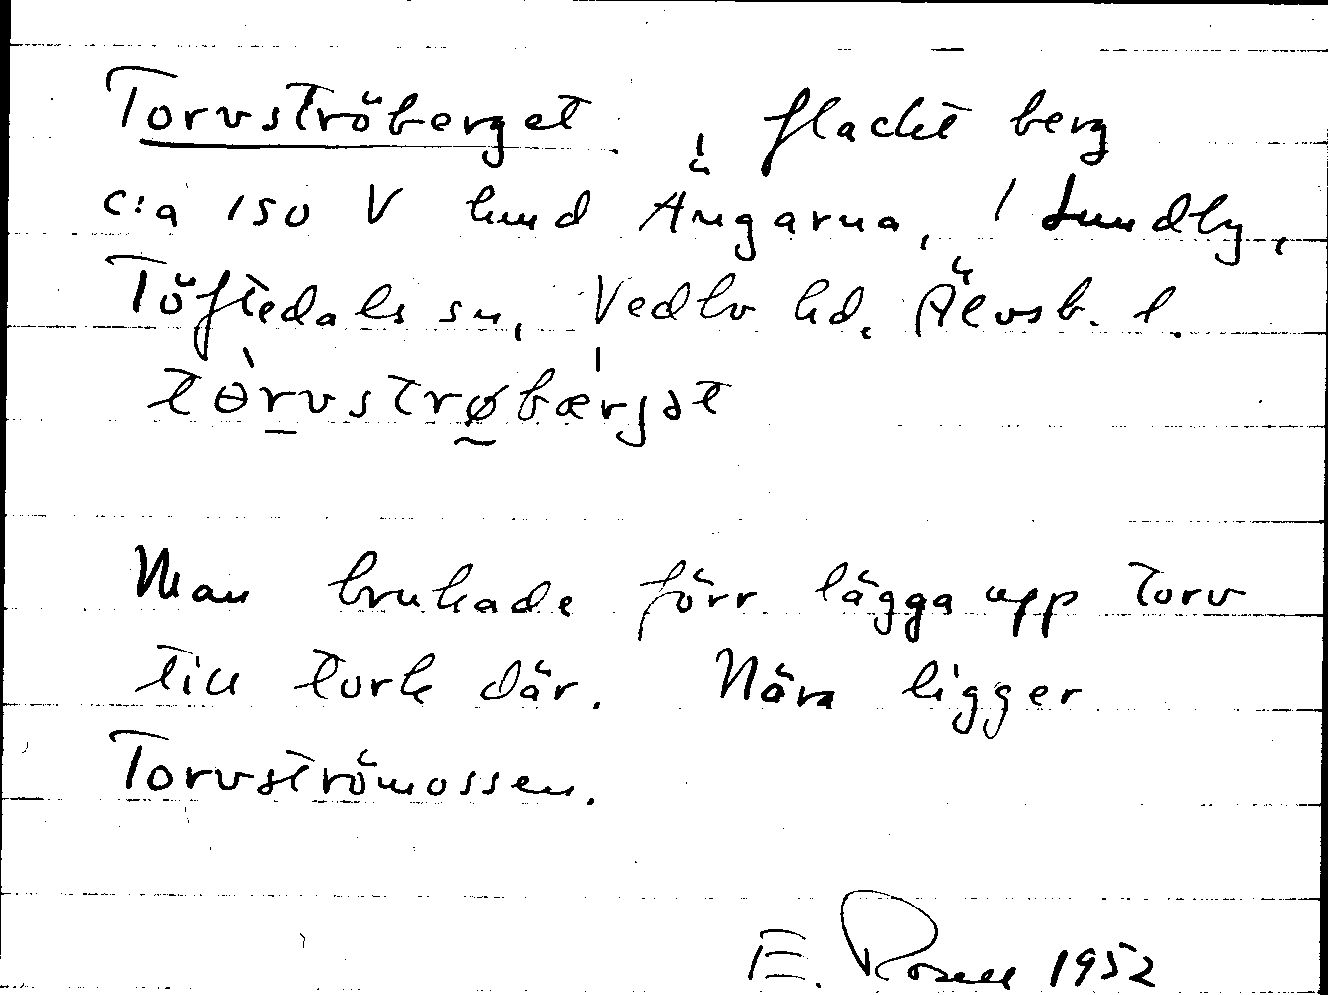 Torvströberget, flackt berg
c:a 150 V hmd Ängarna, i Lundby,
Töftedals sn, Vedbo hd. Älvsb. l.
tòrvstrøbærjət
Man brukade förr lägga upp torv
till tork där. Nära ligger
Torvströmossen.
E. Rosell 1952